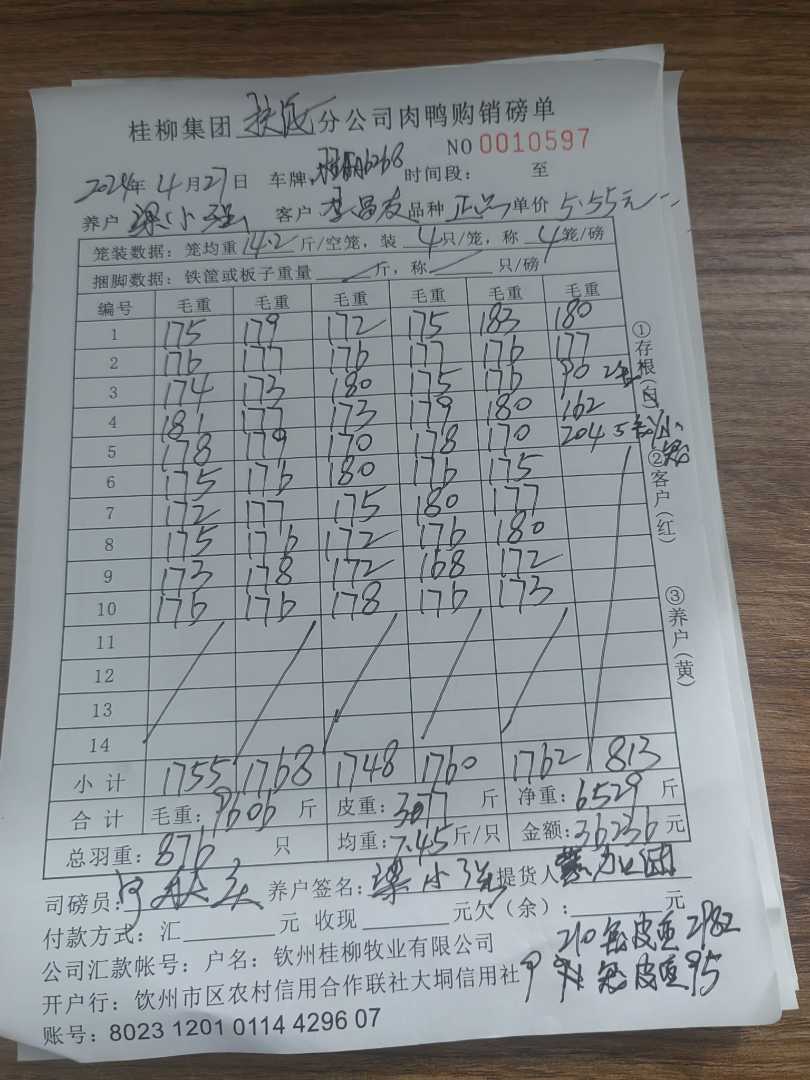 桂柳集团 扶绥 分公司肉鸭购销磅单
NO 0010597
2024年 4月27日 车牌: 6268 时间段: 至
养户 梁小强 客户 李昌友 品种 正品 单价 5.55元
笼装数据: 笼均重 14.2 斤/空笼, 装 4 只/笼, 称 4 笼/磅
捆脚数据: 铁筐或板子重量 斤, 称 只/磅
编号 毛重 毛重 毛重 毛重 毛重 毛重
1 175 179 172 175 183 180
2 176 177 176 177 176 177
3 174 173 180 175 176 90 2笼
4 181 177 173 179 180 162
5 178 179 170 178 170 204 5
6 175 176 180 176 175
7 172 177 175 180 177
8 175 176 172 176 180
9 173 178 172 168 172
10 176 176 178 176 173
11
12
13
14
小计 1755 1768 1748 1760 1762 813
合计 毛重: 9606 斤 皮重: 3077 斤 净重: 6529 斤
总羽重: 876 只 均重: 7.45 斤/只 金额: 36236 元
司磅员: 养户签名: 梁小强 提货人
付款方式: 汇 元 收现 元欠(余): 元
公司汇款帐号: 户名: 钦州桂柳牧业有限公司
210笼皮重2982
开户行: 钦州市区农村信用合作联社大垌信用社
笼皮重95
账号: 8023 1201 0114 4296 07
①存根(白)
②客户(红)
③养户(黄)